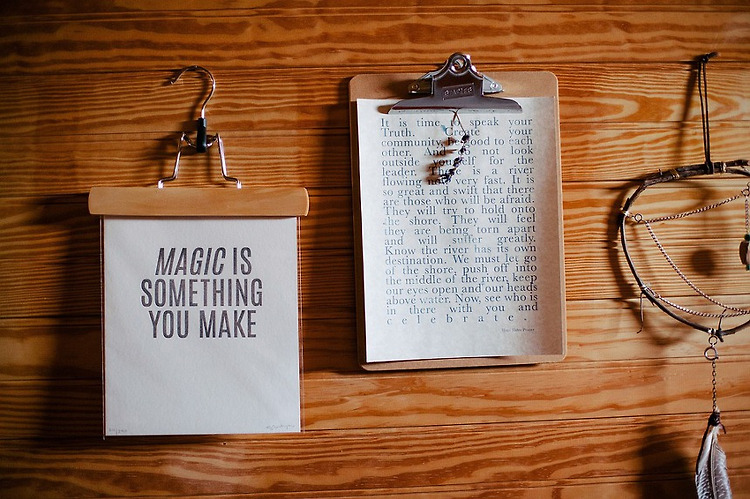 MAGIC IS
SOMETHING
YOU MAKE
It is time to speak your
Truth. Create your
community. good to each
other. And do not look
outside yourself for the
leader. is a river
flowing very fast. It is
so great and swift that there
are those who will be afraid.
They will try to hold onto
the shore. They will feel
they are being torn apart
and will suffer greatly.
Know the river has its own
destination. We must let go
of the shore, push off into
the middle of the river, keep
our eyes open and our heads
above water. Now, see who is
in there with you and
celebrate.